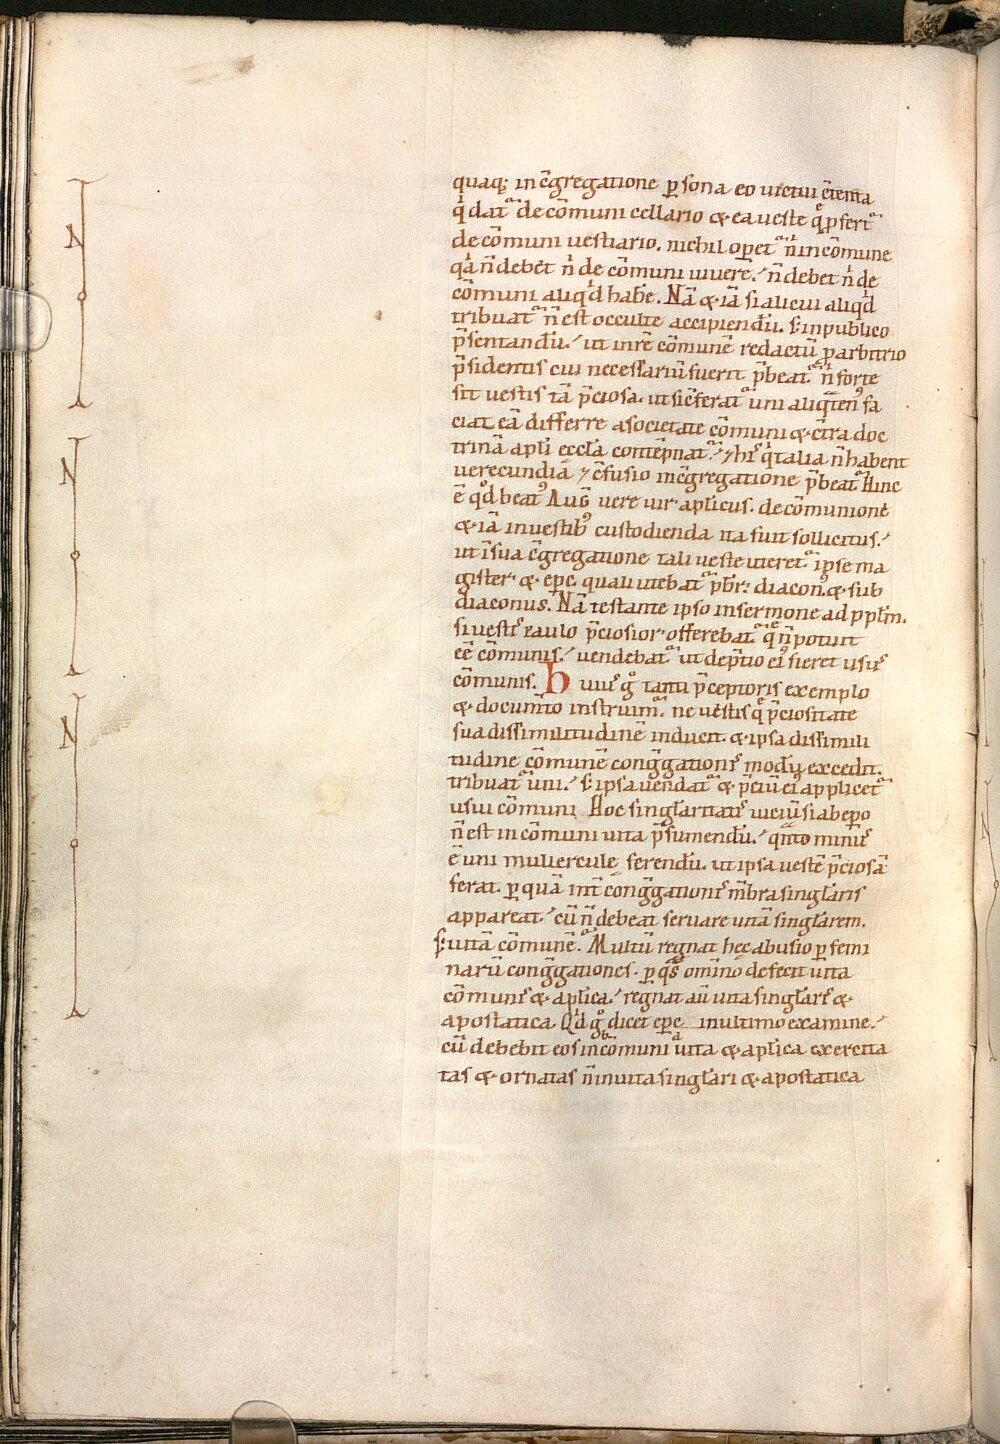 quaq; in c̄gregatione p̱sona eo uictui c̄tenta
q̇ dat᷑ de cōmuni cellario & ea ueste q̄ p̱fert᷑
de cōmuni uestiario. nichil operet᷑ n̍ in cōmune
q̇a n̄ debet n̍ de cōmuni uiuere. n̄ debet n̍ de
cōmuni aliq̍d habe. Nā & iā si alicui aliq̍d
tribuat᷑ n̄ est occulte accipiendū. s; in publico
p̄sentandū. ut in rē cōmunē redactū p̱ arbitrio
p̄sidentis cui necessariū fuerit p̄beat᷑. n̄ forte
sit uestis tā p̄ciosa. ut sic̄ ferat᷑ uni aliq̄ten᷒ fa
ciat eā differre a societate cōmuni & c̄tra doc
trinā apl̄i eccl̄a contēpnat᷑. ⁊ hi᷒ q̍ talia n̄ habent
uerecundiā ⁊ c̄fusio in c̄gregatione p̄beat᷑. Hinc
ē q̍d beat᷒ Aug̅ uere uir aplicus. de cōmunione
& iā in uestib᷒ custodienda ita fuit sollicitus.
ut ī sua c̄gregatione tali ueste uteret᷑ ipse ma
gister & ep̄c. quali utebat᷑ p̄br. diacon᷒. & sub
diaconus. Nā testante ipso in sermone ad pp̄lm.
si uesti᷒ eaulo p̄ciosior offerebat᷑. q̄ n̄ potuit
eē cōmunis. uendebat᷑ ut de p̄tio ei᷒ fieret usu᷒
cōmunis. Huiu᷒ g̊ tanti p̄ceptoris exemplo
& documto instruim᷒. ne uestis q̄ p̄ciositate
sua dissimilitudinē inducit. & ipsa dissimili
tudine cōmunē cong̅gationi᷒ modū excedit.
tribuat᷑ uni. s; ipsa uendat᷑ & p̄ciū ei᷒ applicet᷑
usui cōmuni. Hoc singl̄aritati᷒ uiciū si ab ep̱o
n̄ est in cōmuni uita p̄sumendū. q̄nto minu᷒
ē uni muliercule ferendū. ut ipsa uestē p̄ciosā
ferat. p̱ quā int̄ cong̅gationi᷒ m̄bra singl̄aris
appareat. cū n̄ debeat seruare uitā singl̄arem.
s; uitā cōmunē. Multū regnat hec abusio p̱ femi
narū cong̅gationes. p̱ q̄s omīno defecit uita
cōmuni᷒ & aplica. regnat aū uita singl̄ari᷒ &
apostatica. Q̍d g̊ dicet ep̄c in ultimo examine.
cū debebit eos in cōmuni uita & aplica exercita
tas & ornatas n̄ in uita singl̄ari & apostatica